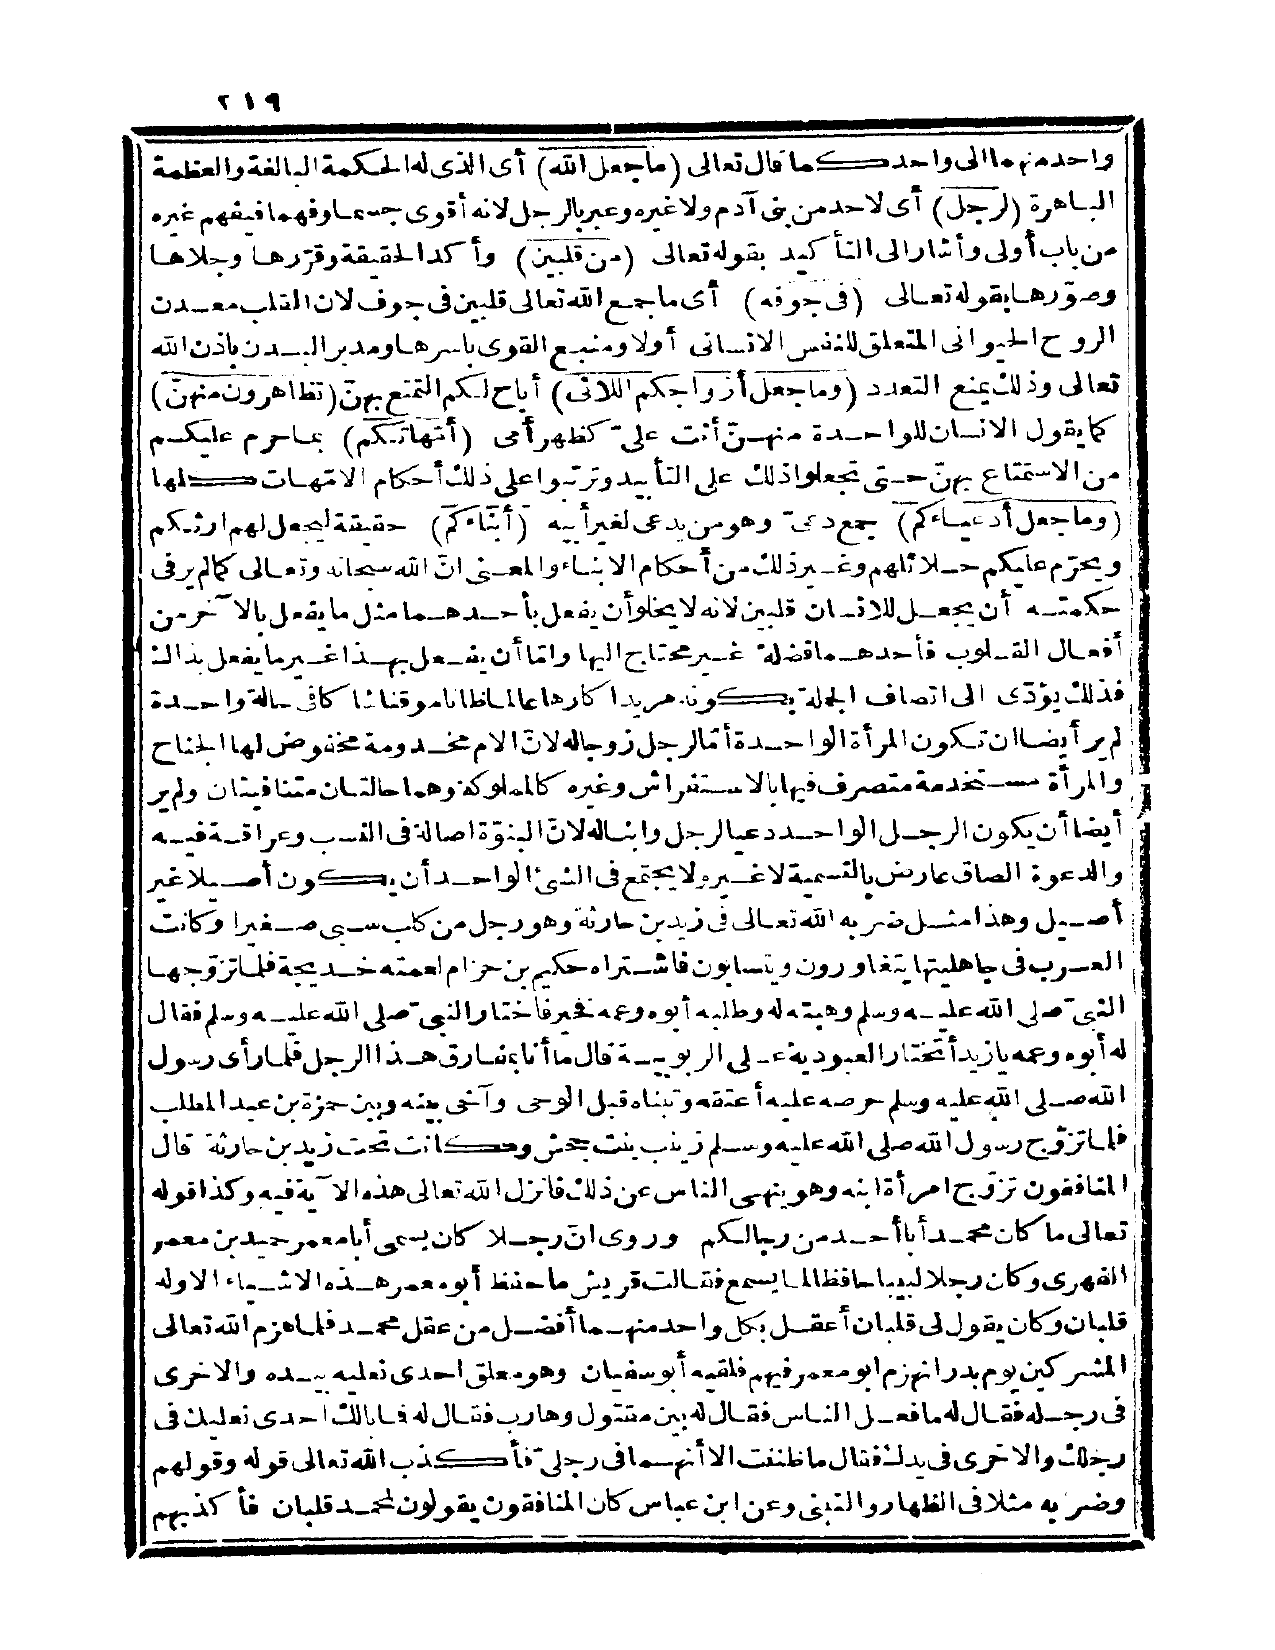 ٢١٩
واحد منهما الى واحد كما قال تعالى (ما جعل الله) أى الذى له الحكمة البالغة والعظمة
الباهرة (لرجل) أى لاحد من بنى آدم ولا غيره وعبر بالرجل لانه أقوى جسما وفهما فيفهم غيره
من باب أولى وأشار الى التأكيد بقوله تعالى (من قلبين) وأكد الحقيقة وقرّرها وجلاها
وصوّرها بقوله تعالى (فى جوفه) أى ما جمع الله تعالى قلبين فى جوف لان القلب معدن
الروح الحيوانى المتعلق للنفس الانسانى أولا ومنبع القوى باسرها ومدبر البدن باذن الله
تعالى وذلك يمنع التعدد (وما جعل أزواجكم اللائى) أباح لكم التمتع بهنّ (تظاهرون منهنّ)
كما يقول الانسان للواحدة منهنّ أنت علىّ كظهر أمى (أمّهاتكم) بما حرم عليكم
من الاستمتاع بهنّ حتى تجعلوا ذلك على التأبيد وترتبوا على ذلك أحكام الامّهات كلها
(وما جعل أدعياءكم) جمع دعىّ وهو من يدعى لغير أبيه (أبناءكم) حقيقة ليجعل لهم ارثكم
ويحرّم عليكم حلائلهم وغير ذلك من أحكام الابناء والمعنى انّ الله سبحانه وتعالى كما لم ير فى
حكمته أن يجعل للانسان قلبين لانه لا يخلو أن يفعل بأحدهما مثل ما يفعل بالآخر من
أفعال القلوب فأحدهما فضلة غير محتاج اليها وامّا أن يفعل بهذا غير ما يفعل بذاك
فذلك يؤدّى الى اتصاف الجملة بكونه مريدا كارها عالما ظانا موقنا شاكا فى حالة واحدة
لم ير أيضا ان تكون المرأة الواحدة أمّا لرجل زوجا له لانّ الام مخدومة مخفوض لها الجناح
والمرأة مستخدمة متصرف فيها بالاستفراش وغيره كالمملوكة وهما حالتان متنافيتان ولم ير
أيضا أن يكون الرجل الواحد دعيا لرجل وابنا له لانّ البنوّة اصالة فى النسب وعراقة فيه
والدعوة الصاق عارض بالتسمية لا غير ولا يجتمع فى الشئ الواحد أن يكون أصيلا غير
أصيل وهذا مثل ضربه الله تعالى فى زيد بن حارثة وهو رجل من كلب سبى صغيرا وكانت
العرب فى جاهليتها يتغاورون ويتسابون فاشتراه حكيم بن حزام لعمته خديجة فلما تزوّجها
النبىّ صلى الله عليه وسلم وهبته له وطلبه أبوه وعمه فخير فاختار النبىّ صلى الله عليه وسلم فقال
له أبوه وعمه يا زيد أتختار العبودية على الربوبية قال ما أنا بمفارق هذا الرجل فلما رأى رسول
الله صلى الله عليه وسلم حرصه عليه أعتقه وتبناه قبل الوحى وآخى بينه وبين حمزة بن عبد المطلب
فلما تزوّج رسول الله صلى الله عليه وسلم زينب بنت جحش وكانت تحت زيد بن حارثة قال
المنافقون تزوّج امرأة ابنه وهو ينهى الناس عن ذلك فانزل الله تعالى هذه الآية فيه وكذا قوله
تعالى ما كان محمد أبا أحد من رجالكم وروى انّ رجلا كان يسمى أبا معمر حميد بن معمر
الفهرى وكان رجلا لبيبا حافظا لما يسمع فقالت قريش ما حفظ أبو معمر هذه الاشياء الا وله
قلبان وكان يقول لى قلبان أعقل بكل واحد منهما أفضل من عقل محمد فلما هزم الله تعالى
المشركين يوم بدر انهزم ابو معمر فيهم فلقيه أبو سفيان وهو معلق احدى نعليه بيده والاخرى
فى رجله فقال له ما فعل الناس فقال له بين مقتول وهارب فقال له فما بالك احدى نعليك فى
رجلك والاخرى فى يدك فقال ما ظننت الا أنهما فى رجلىّ فأكذب الله تعالى قوله وقولهم
وضربه مثلا فى الظهار والتبنى وعن ابن عباس كان المنافقون يقولون لمحمد قلبان فأكذبهم